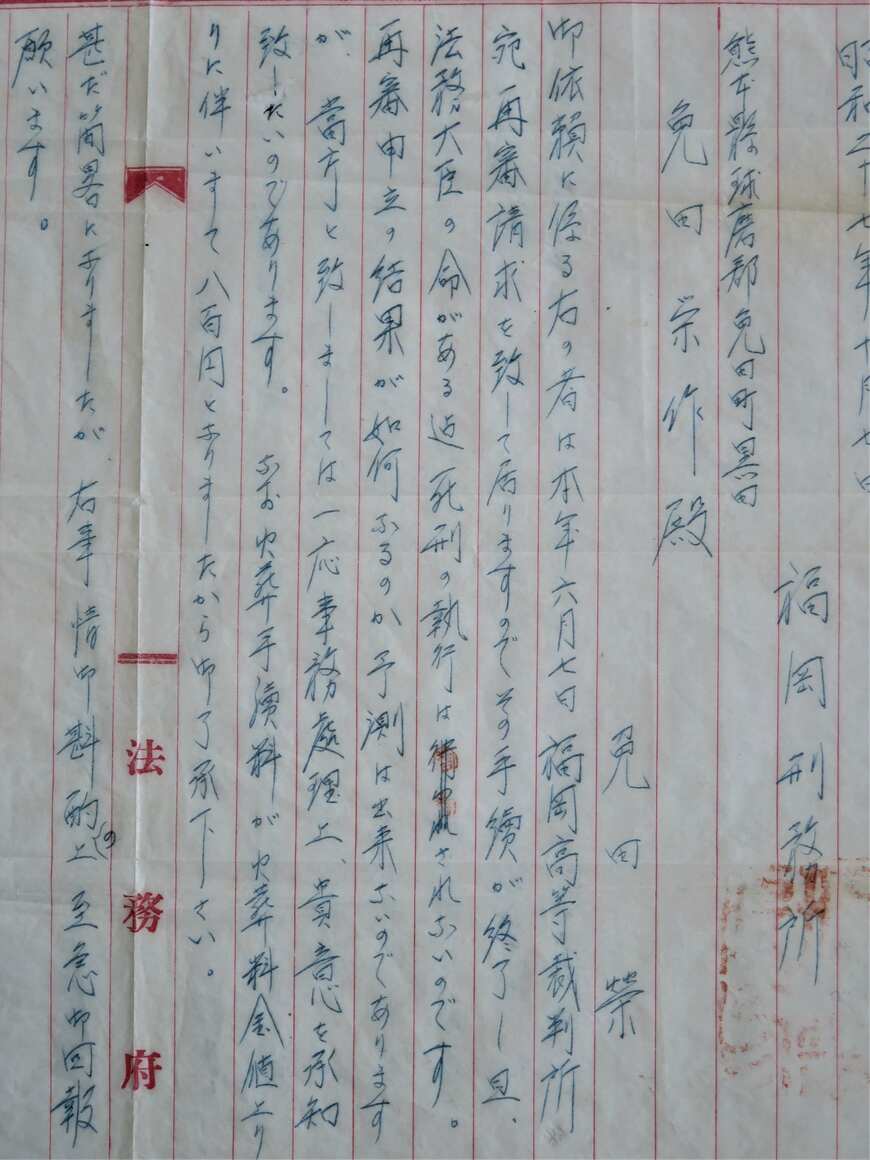 昭和二十七年十月七日
福岡刑務所
熊本縣球磨郡免田町黒田
免田栄作殿
免田榮
御依頼に係る右の者は本年六月七日福岡高等裁判所
宛再審請求を致して居りますのでその手續が終了し且、
法務大臣の命がある迄死刑の執行は されないのです。
再審申立の結果が如何なるのか予測は出来ないのであります
が、當方と致しましては一応事務處理上、貴意を承知
致したいのであります。 なお火葬手瀆料が火葬料金値上り
りに伴いまして八百円となりましたから御了承下さい。
法務府
甚だ簡畧になりましたが、右事情御斟酌の上至急御回報
願います。